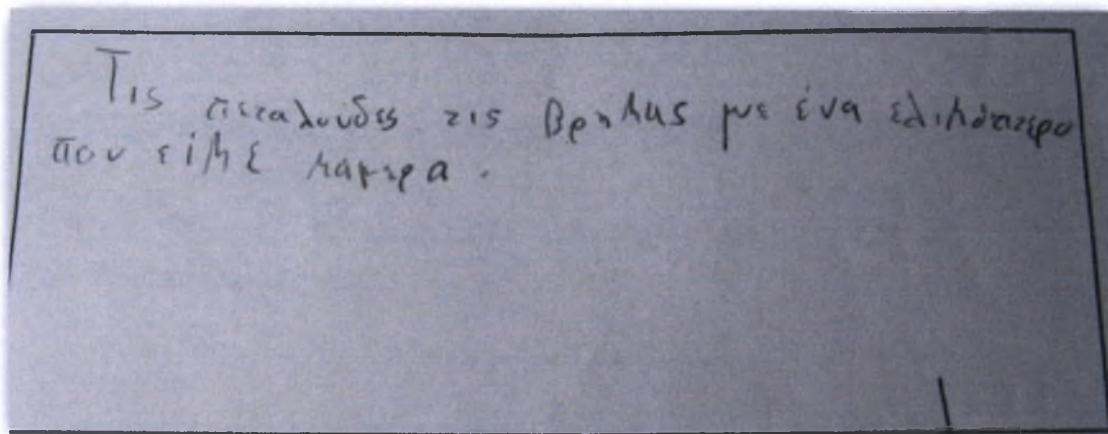 Τις πεταλουδες τις βρηκας με ένα ελικόπτερο
που είκε καμερα.